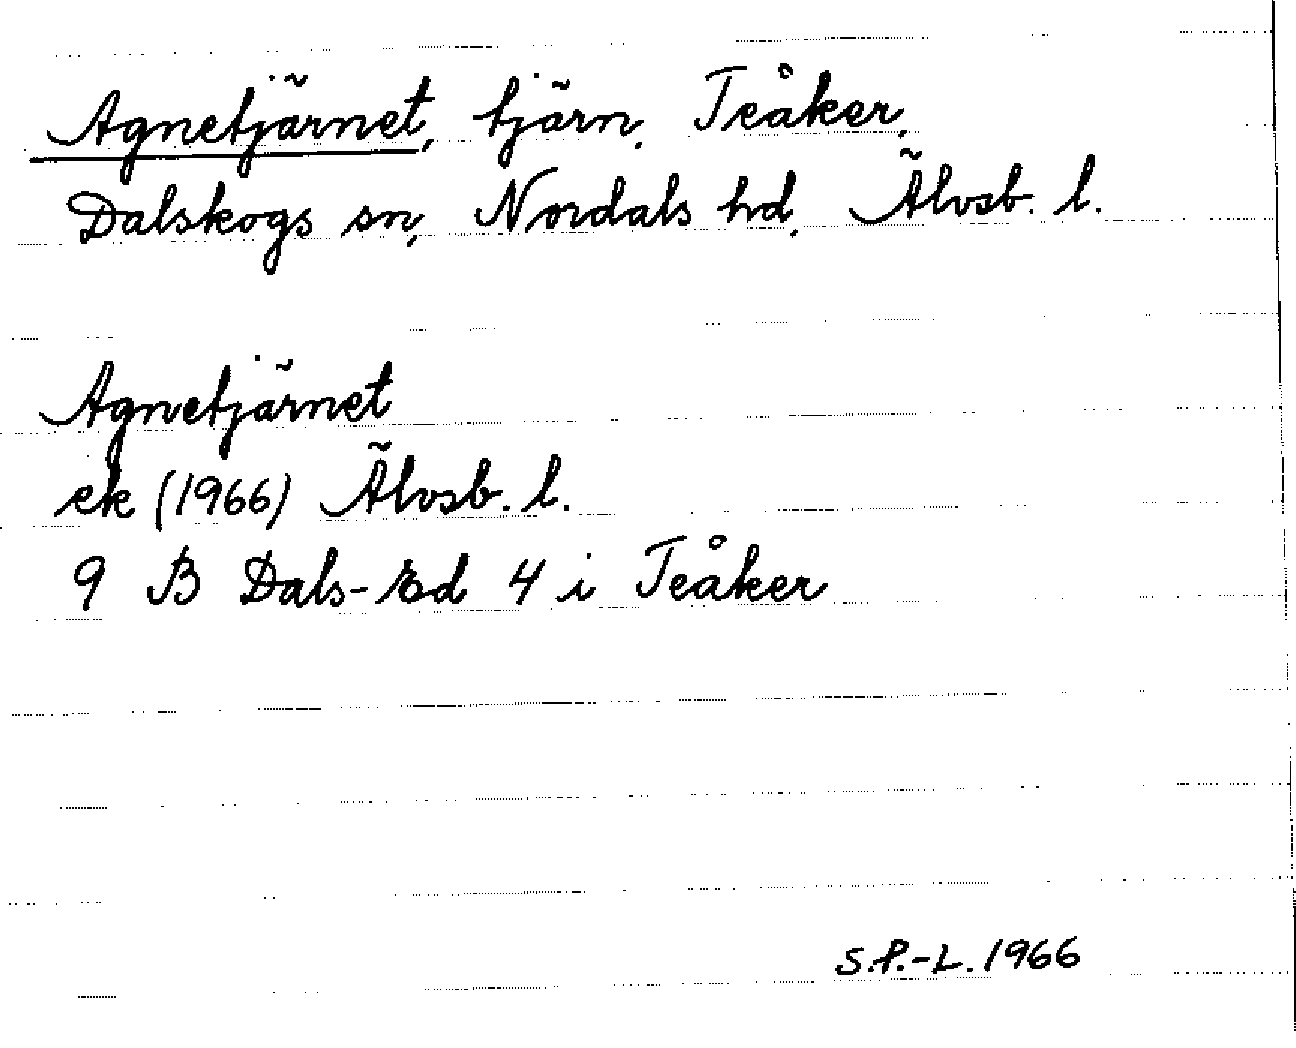 Agnetjärnet, tjärn, Teåker,
Dalskogs sn, Nordals hd, Älvsb. l.
Agnetjärnet
ek (1966) Älvsb. l.
9 B Dals-Ed 4 i Teåker
S.P.-L. 1966